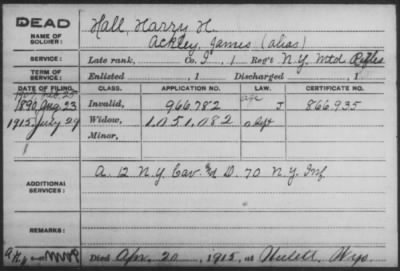 DEAD
NAME OF SOLDIER:
Hall, Harry H.
Ackley, James (alias)
SERVICE: Late rank, Co. I, 1 Reg't N.Y. Mtd. Rifles
TERM OF SERVICE: Enlisted , 1 Discharged , 1
DATE OF FILING. CLASS. APPLICATION NO. LAW. CERTIFICATE NO.
1890, Aug. 23 Invalid, 966.782 J 866.935
1915, July 29 Widow, 1.051.082
Minor,
ADDITIONAL SERVICES:
A. 12 N.Y. Cav. D. 70 N.Y. Inf
REMARKS:
Died Apr. 20, 1915, at Hulett, Wyo.